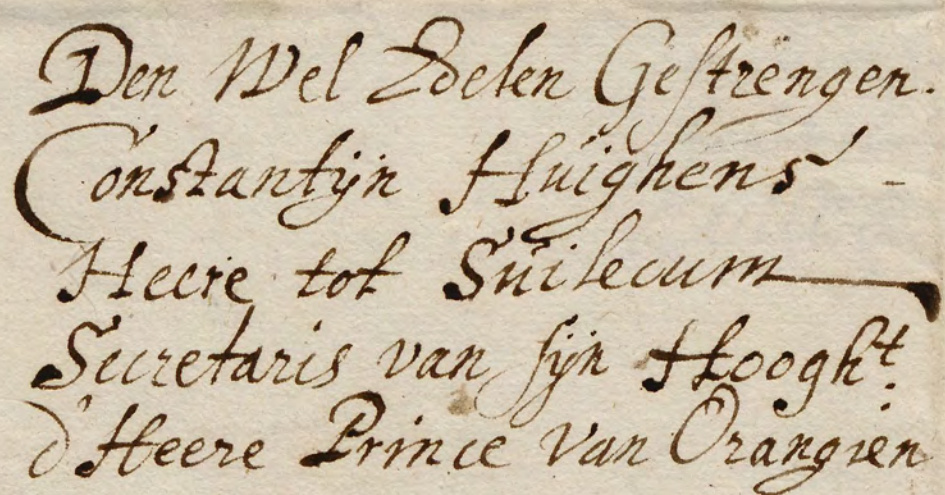 Den Wel Edelen Gestrengen.
Constantijn Huighens -
Heere tot Suilecum
Secretaris van sijn Hooght.
d'Heere Prince van Orangien